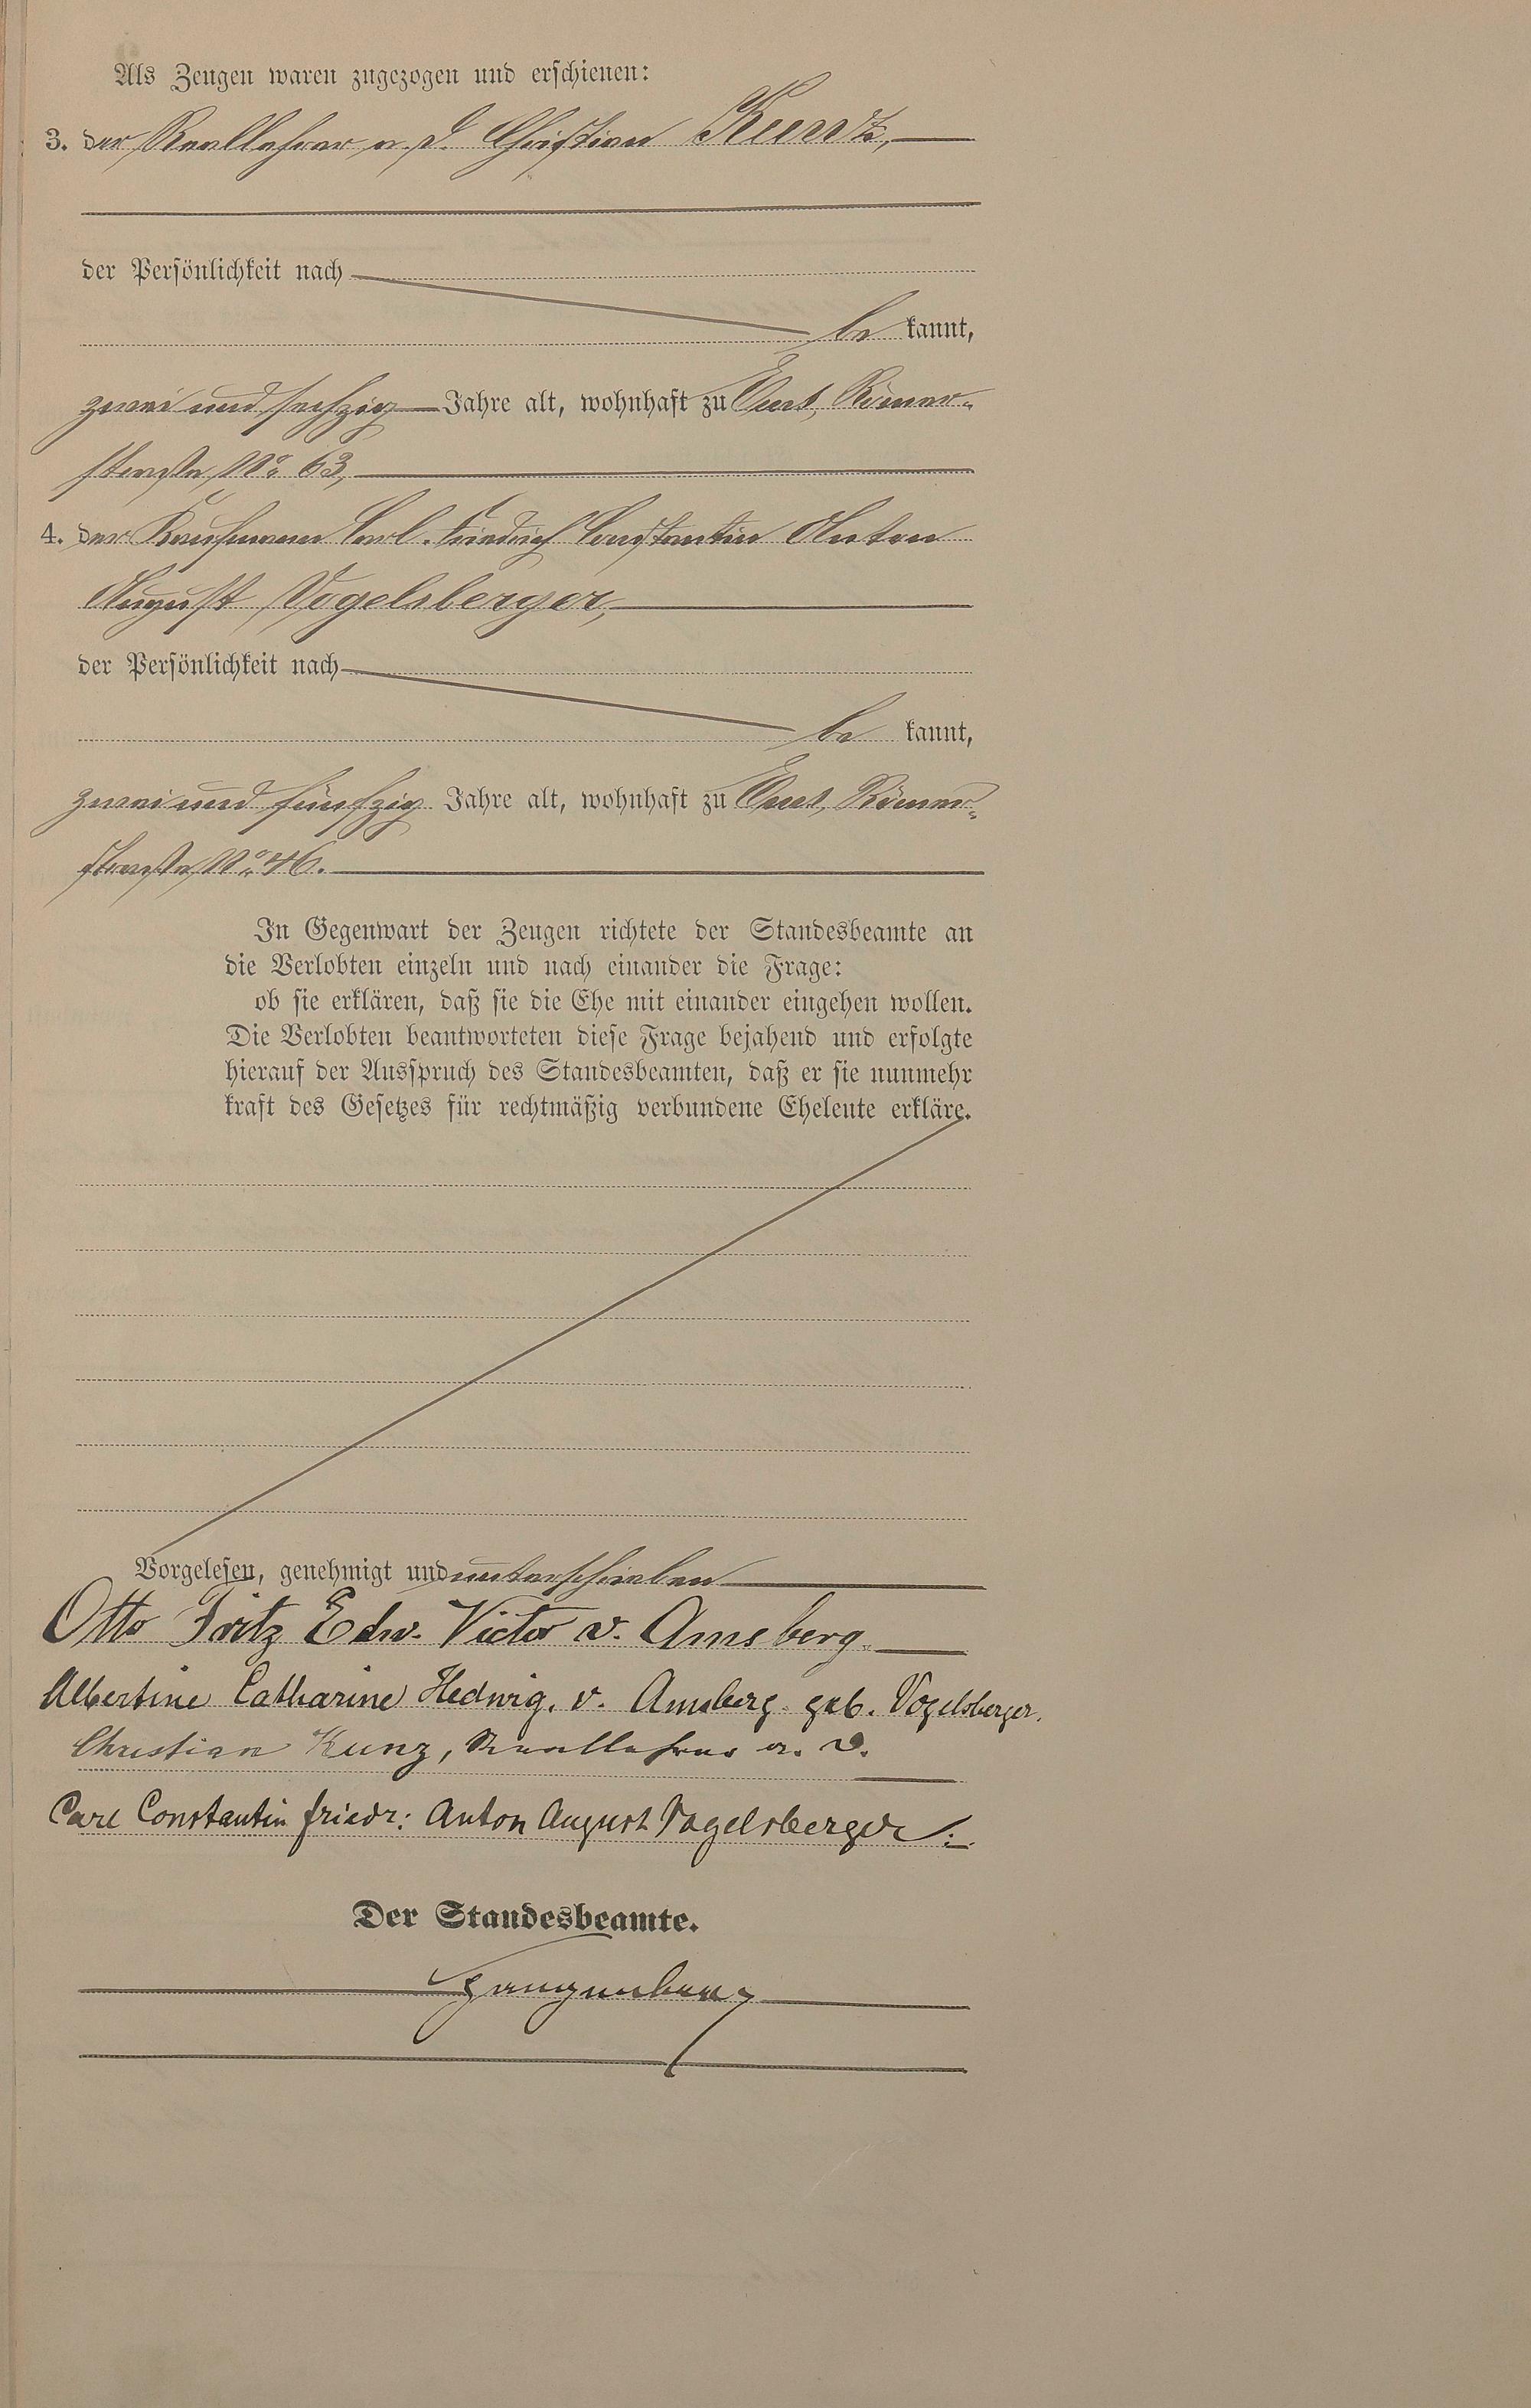 Als Zeugen waren zugezogen und erschienen:
3. der Reallehrer a. D. Christian Kuntz,
der Persönlichkeit nach
be kannt,
zwei und sechzig Jahre alt, wohnhaft zu Ems, Römer-
straße No 63,
4. der Kaufmann Carl Friedrich Constantin Anton
August Vogelsberger,
der Persönlichkeit nach
be kannt,
zwei und fünfzig Jahre alt, wohnhaft zu Ems, Römer-
straße No 46.
In Gegenwart der Zeugen richtete der Standesbeamte an
die Verlobten einzeln und nach einander die Frage:
ob sie erklären, daß sie die Ehe mit einander eingehen wollen.
Die Verlobten beantworteten diese Frage bejahend und erfolgte
hierauf der Ausspruch des Standesbeamten, daß er sie nunmehr
kraft des Gesetzes für rechtmäßig verbundene Eheleute erkläre.
Vorgelesen, genehmigt und unterschrieben
Otto Fritz Edw. Victor v. Amsberg
Albertine Catharine Hedwig. v. Amsberg geb. Vogelsberger.
Christian Kunz, Reallehrer a. D.
Carl Constantin Friedr: Anton August Vogelsberger.
Der Standesbeamte.